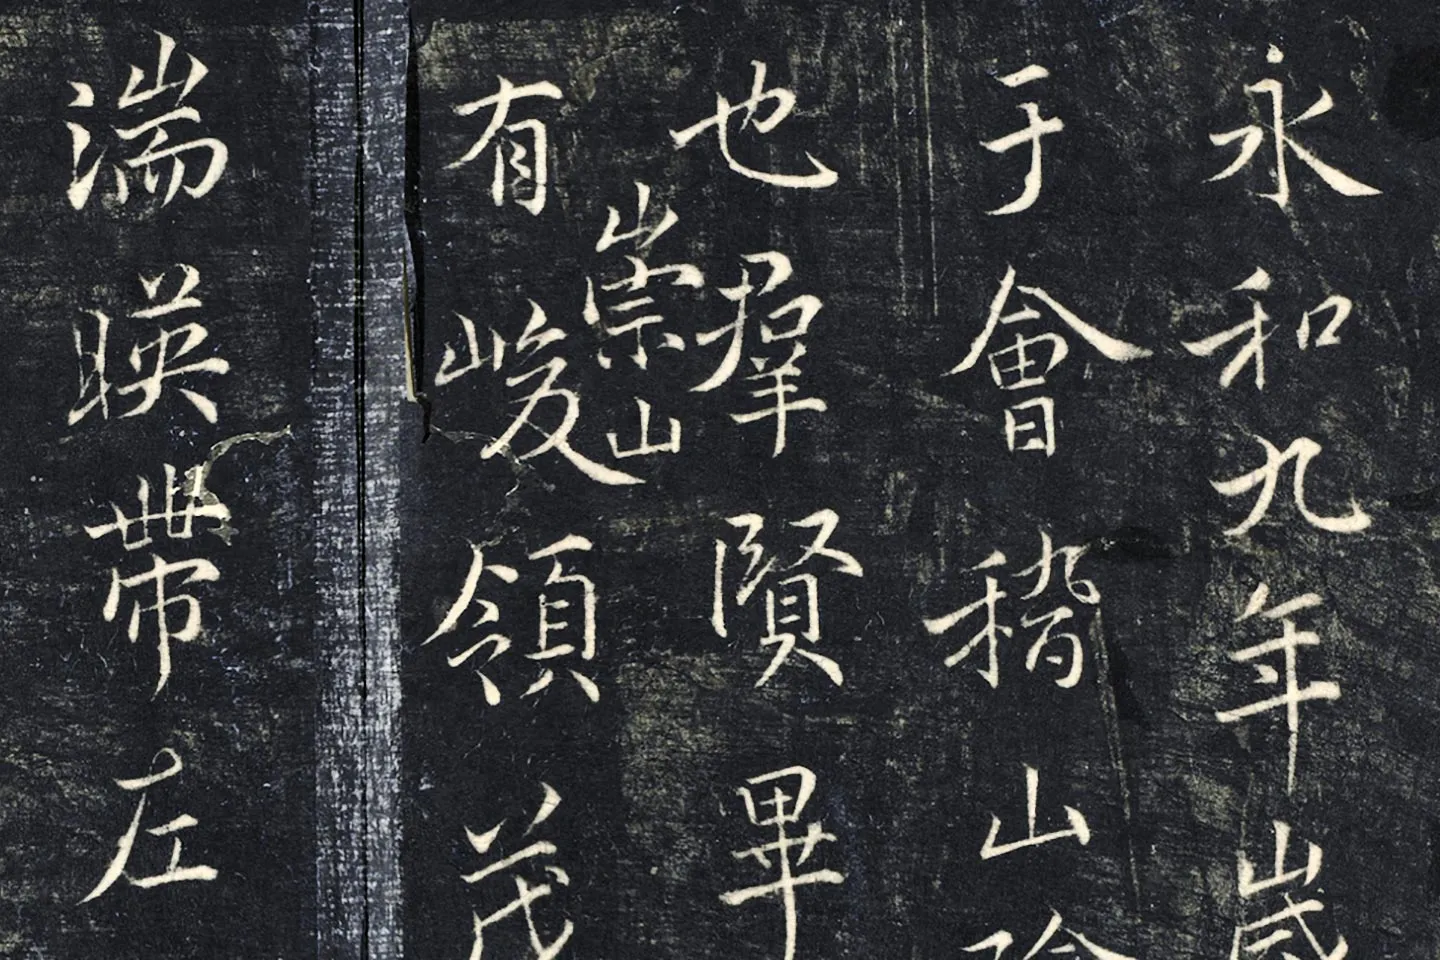 永和九年歳
于會稽山陰
也羣賢畢
崇山
有峻領茂
湍暎帶左